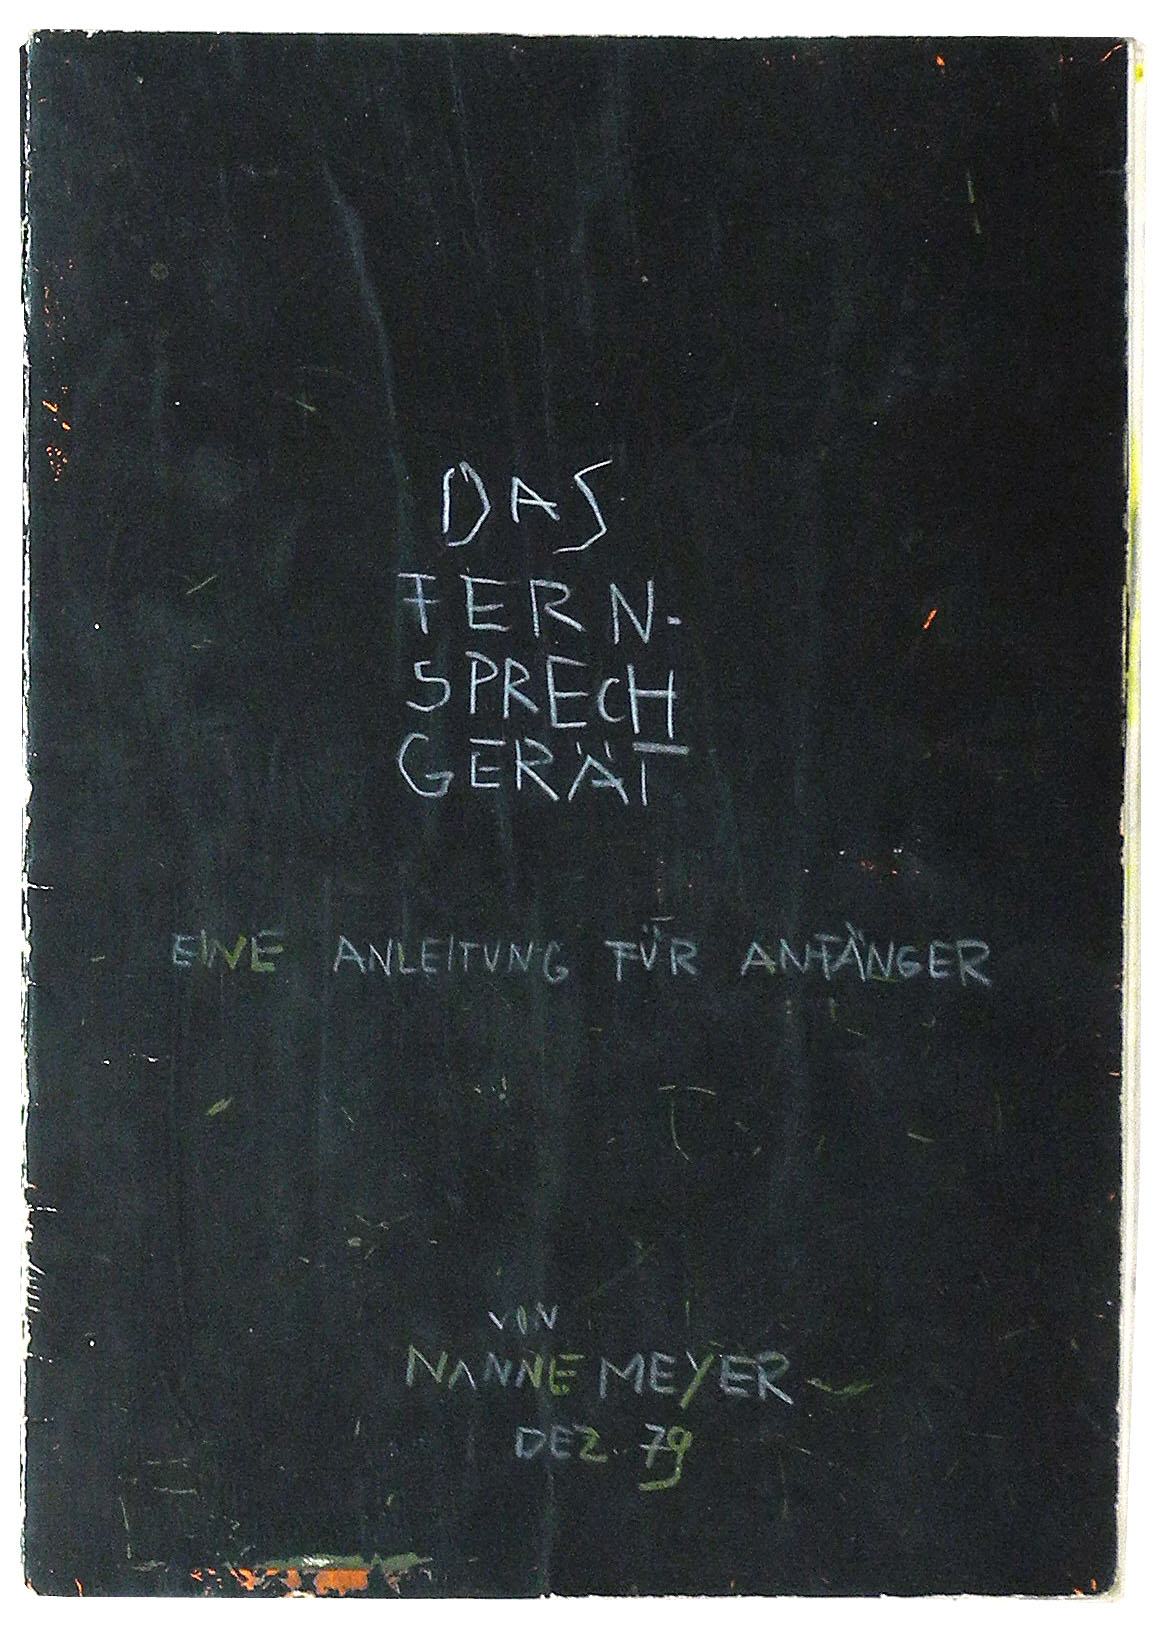 DAS
FERN-
SPRECH
GERÄT
EINE ANLEITUNG FÜR ANFÄNGER
VON
NANNE MEYER
DEZ. 79